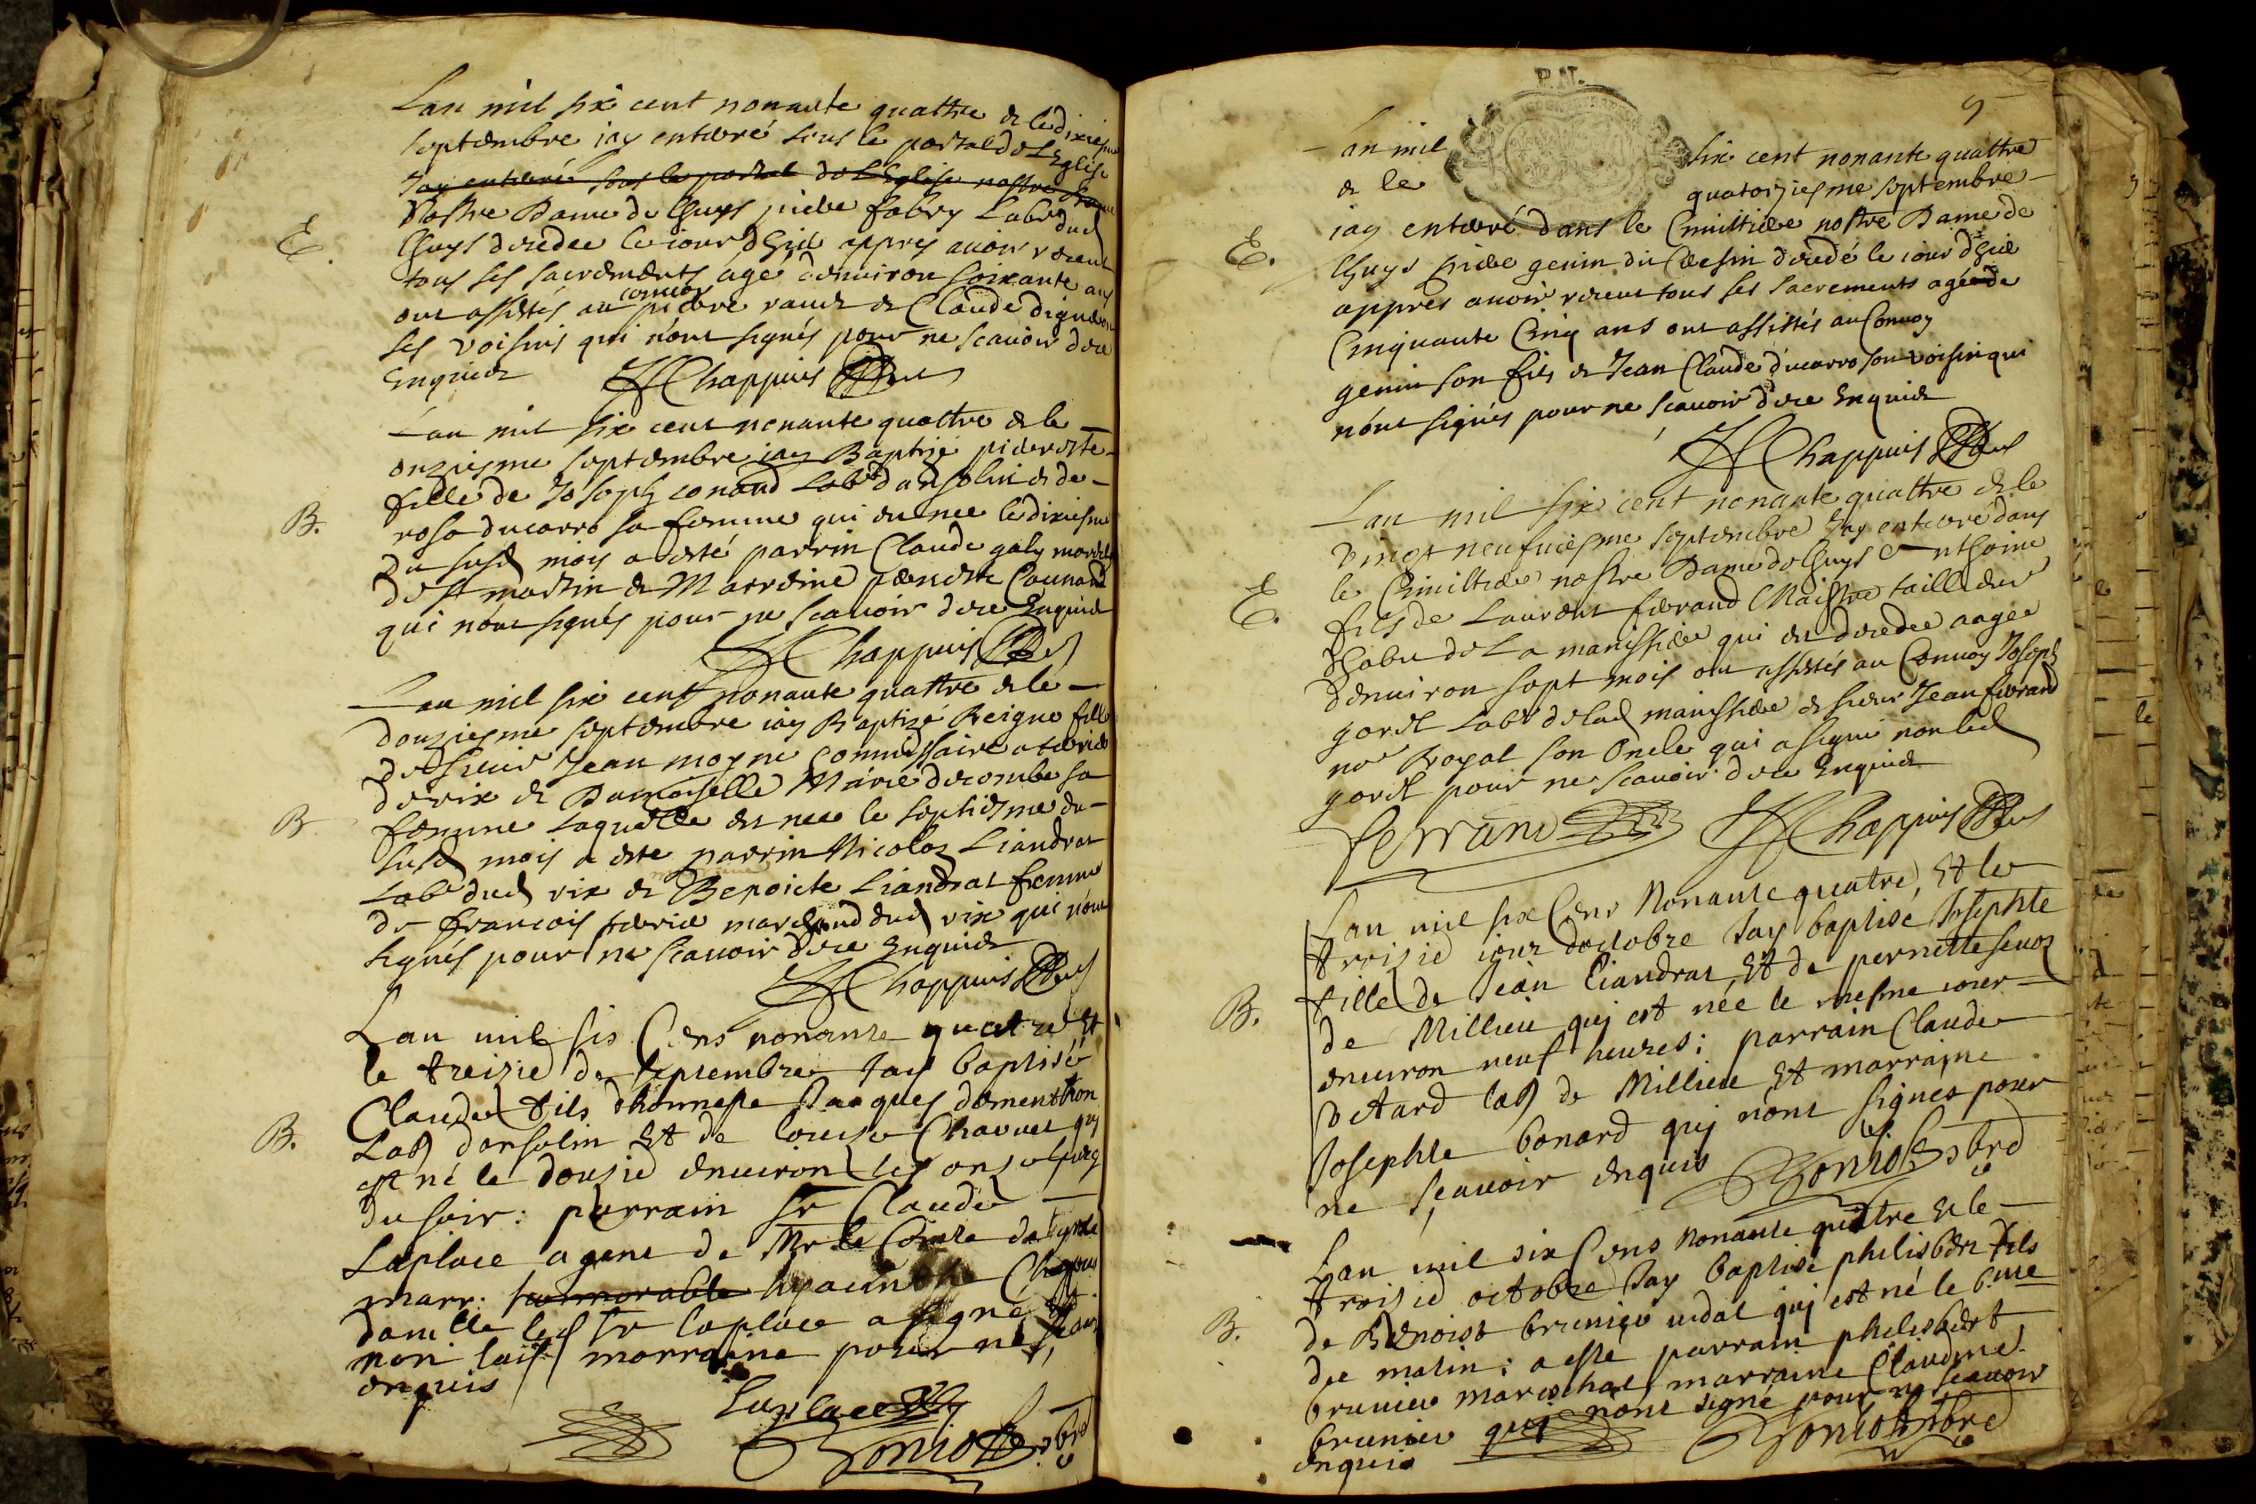 Lan mil six cent nonante quattre & le dixiesme
septembre iay enterré sous le portal de LEglise
Jay enterré sous le portal de LEglise nostre Dame
Nostre Dame de Chuys piere fabry Labr dud
E. Chuys decedee le iour dhier appres auoir receut
tous ses sacrements âgé denuiron soixante ans
ont assistés au conuoy piere & Claude
ses voisins qui nónt signés pour ne scauoir dece
Enquis HChappuis
Lan mil six cent nonante quattre & le
onziesme septembre iay Baptizé pierrette
fille de Joseph conand Labr dansolin & de
B. rose ducarro sa femme qui est nee le dixiesme
du susd mois a esté parrin Claude galy
de st martin & Marreine pernette Counand
qui nónt signés pour ne scauoir dece Enquis
HChappuis
Lan mil six cent nonante quattre & le
douziesme septembre iay Baptizé Reigne fille
de sieur Jean moyne commissaire a terrier
de vix & Damoiselle Marie decombe sa
B femme laquelle est nee le septiesme du
susd mois a esté parrin Nicolas Liandrat
Labr dud vix & Benoicte Liandrat femme
de francois ferrier marchand dud vix qui nónt
signés pour ne scauoir dece Enquis
HChappuis
Lan mil sis Cens nonante quatre et
le treizie de septembre Jay baptisé
Claude fils dhonneste Jacques dementhon
B. Lab dansolin Et de Louise Chavuet quj
est né le douzie enuiron les onze heures
du soir: parrain Sr Claude
Laplace agent de Mr le Comte de
marr: honnorable hyacinthe
danille led Sr laplace a signé Et
non lad marraine pour ne scauoir
enquis
Laplace
9
P.N.
Lan mil six cent nonante quattre
& le quatorziesme septembre
iay enterré dans le Cimistiere nostre Dame de
E. Chuys piere genin dit decedé le iour dhier
appres auoir receut tous ses sacrements agé de
Cinquante Cinq ans ont assistés au Conuoy
genin son fils & Jean Claude ducarro son voisin qui
nónt signés pour ne scauoir dece Enquis
HChappuis
Lan mil six cent nonante quattre & le
vingt neufuiesme septembre Jay enterré dans
le Cimistiere nostre Dame de Chuys Anthoine
E. fils de Laurent ferrand Maistre tailleur
dhabit de La manissiere qui est decedee aagee
denuiron sept mois ont assistés au Conuoy Joseph
goret Labr de lad manissiere & sieur Jean ferrand
nore Royal son Oncle qui a signé non led
goret pour ne scauoir dece Enquis
ferrand HChappuis
Lan mil six Cens Nonante quatre, Et le
troisie iour doctobre Jay baptisé Josephte
fille de Jean Liandrat, Et de pernette
B. de Millieu quj est née le mesme iour
enuiron neuf heures; parrain Claude
lab de Millieu Et marraine
Josephte bonard quj nónt signés pour
ne sçauoir enquis
Lan mil six Cens Nonante quattre & le
troisie octobre Jay baptisé philisbert fils
B. de Benoist brunier quj est né le
du matin; a esté parrain philisbert
brunier mareschal marraine Claudine
brunier quj nónt signé pour ne scauoir
enquis